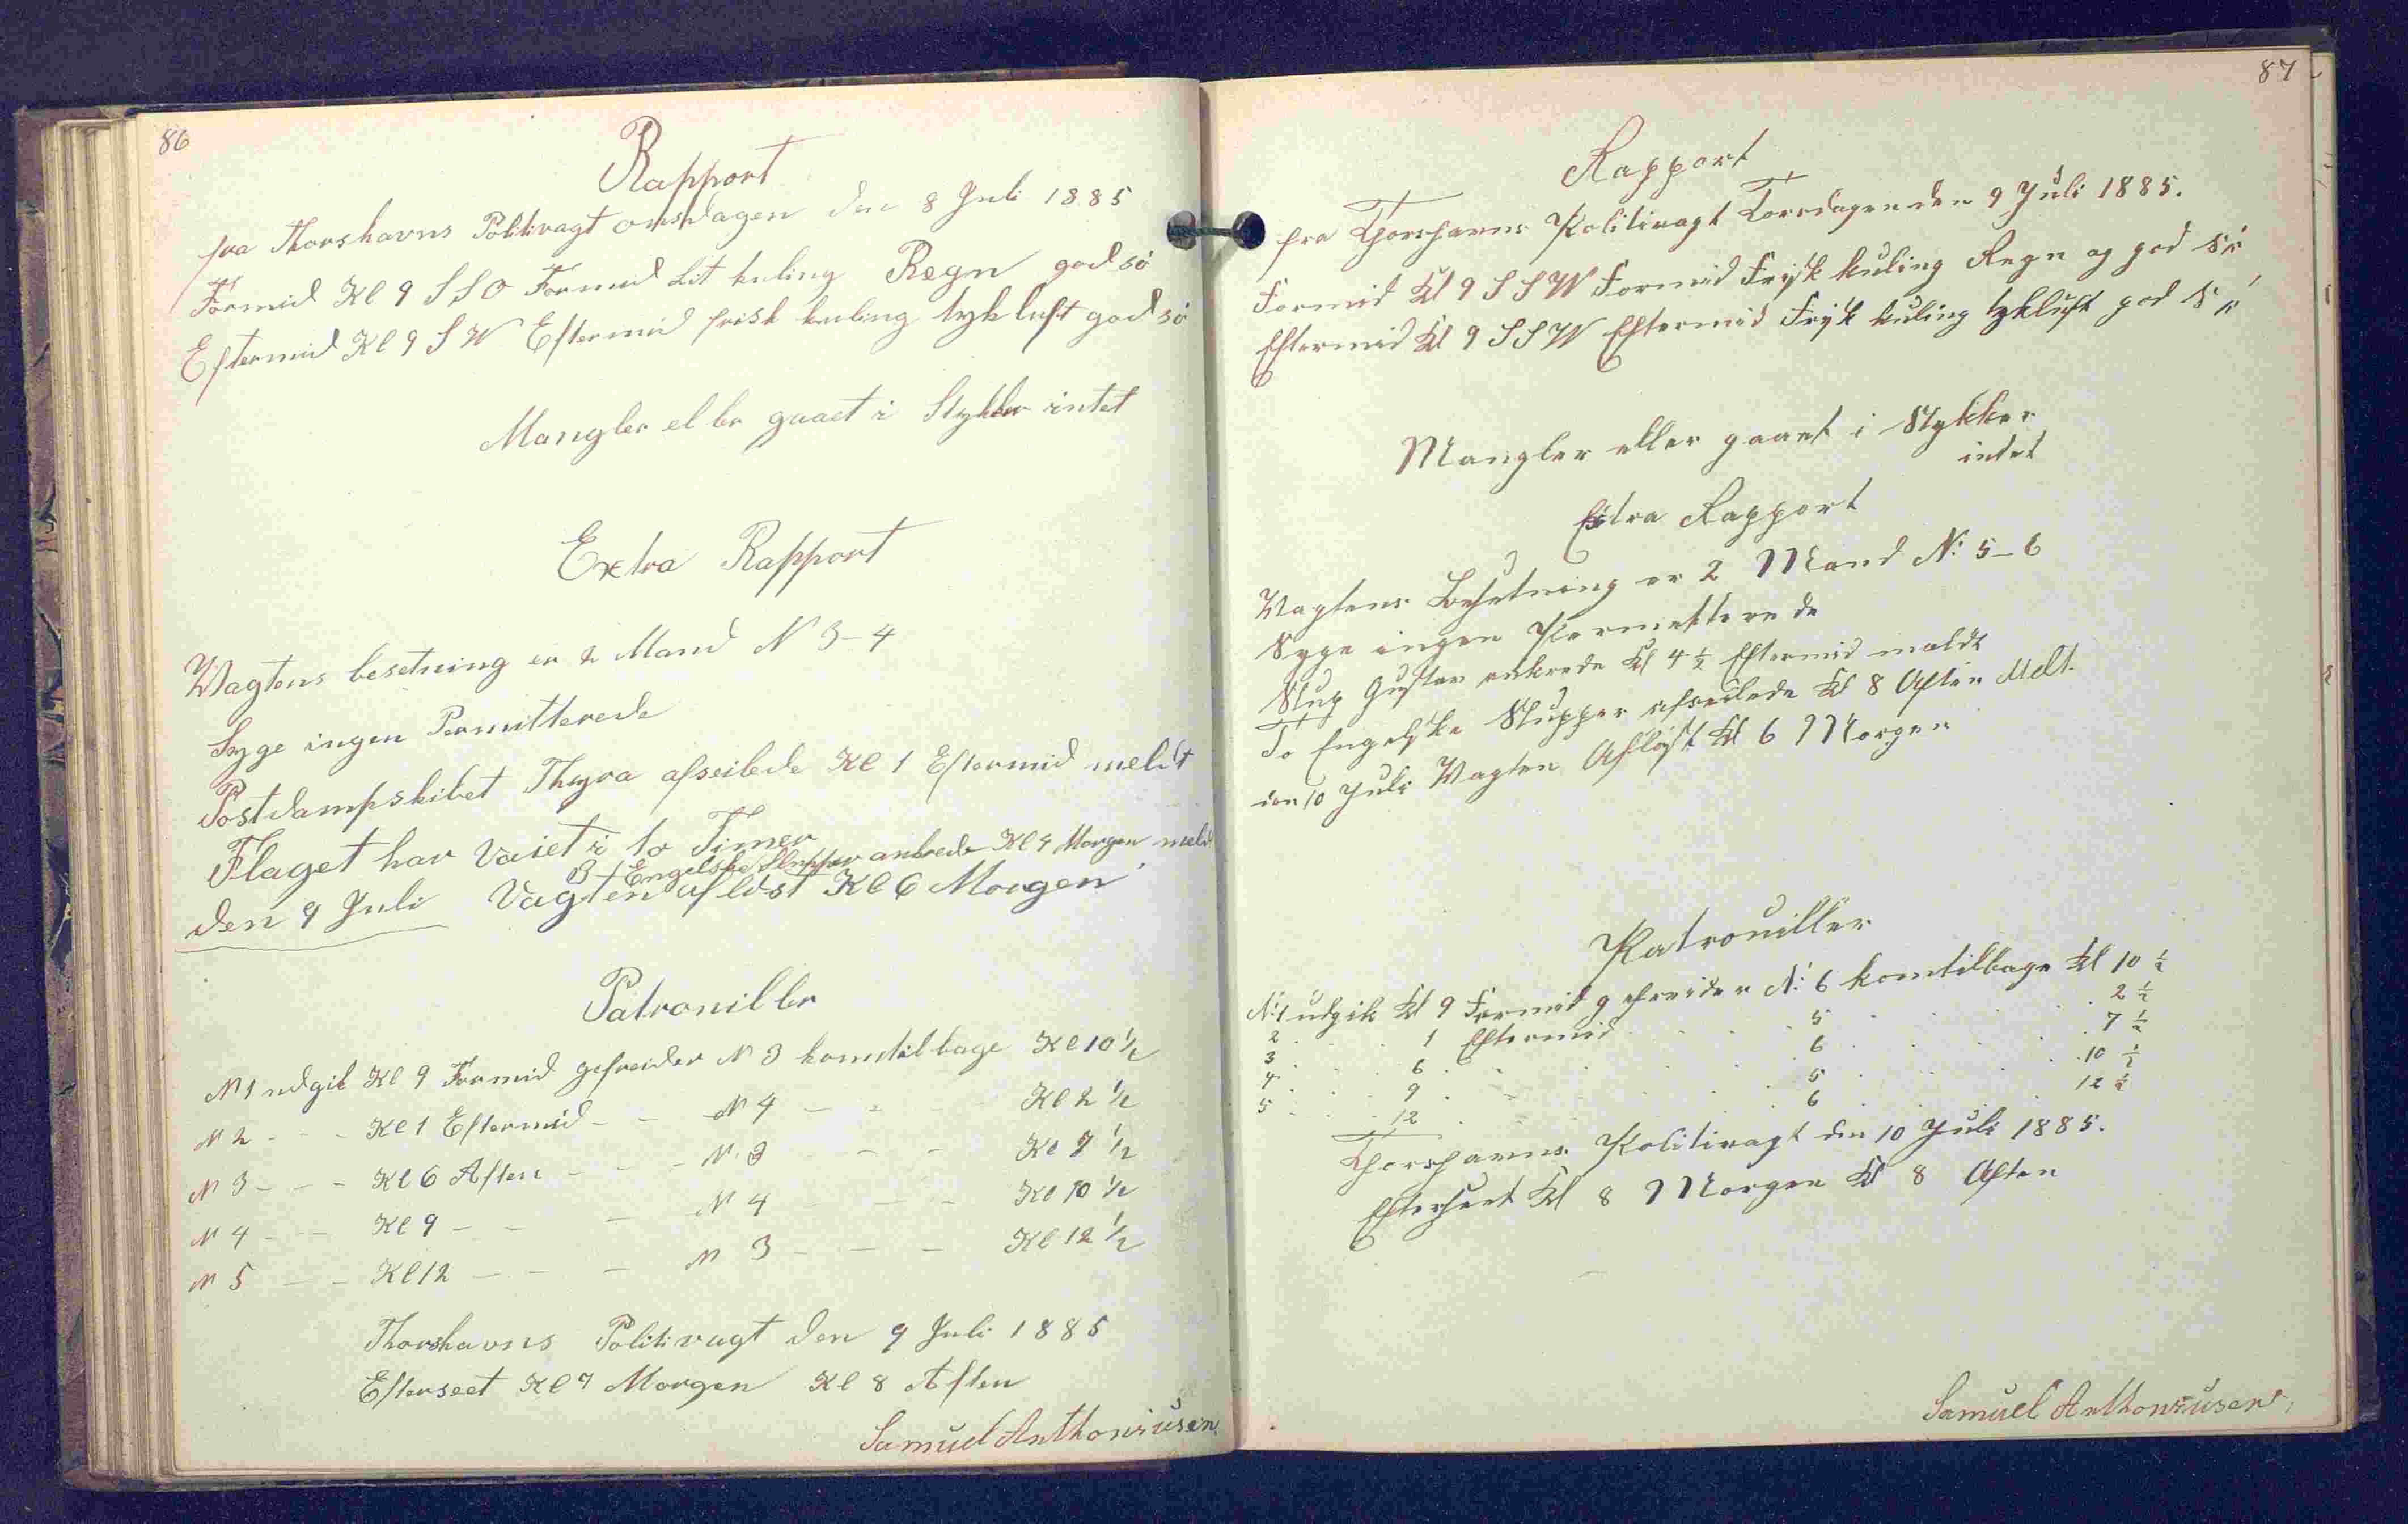 86
Rapport
fra Thorshavns Politivagt onsdagen den 8 Juli 1885
Formid Kl 9 S S O Formid Lit kuling Regn god sö
Eftermid Kl 9 S W Eftermid frisk kuling tyk luft god sö
Mangler eller gaaet i Stykker intet
Extra Rapport
Wagtens besetning er 2 Mand N 3-4
Syge ingen Permitterede
Postdampskibet Thyra afseilede Kl 1 Eftermid meldt
Flaget har Vaiet i to Timer
3 Engelske Slupper ankrede Kl 4 Morgen meld
den 9 Juli Vagten aflöst Kl 6 Morgen
Patrouiller
N 1 udgik Kl 9 Formid gefreider N 3 komtilbage Kl 10 1/2
N 2 - - - Kl 1 Eftermid - - N 4 - - - Kl 2 1/2
N 3 - - - Kl 6 Aften - - - N 3 - - - Kl 7 1/2
N 4 - - Kl 9 - - - N 4 - - - Kl 10 1/2
N 5 - - Kl 12 - - - N 3 - - - Kl 12 1/2
Thorshavns Politivagt den 9 Juli 1885
Efterseet Kl 7 Morgen Kl 8 Aften
Samuel Anthoniusen
87
Rapport
fra Thorshavns Politivagt Torsdagen den 9 Juli 1885.
Formid Kl 9 S S W Formid Frisk kuling Regn og god Sö
Eftermid Kl 9 S S W Eftermid Frisk kuling tykluft god Sö
Mangler eller gaaet i Stykker
intet
Extra Rapport
Wagtens Besetning er 2 Mand N: 5-6
Syge ingen Permetterede
Slup Gustav ankrede Kl 4 1/2 Eftermid meldt
To Engelske Slupper afseilede Kl 8 Aften Melt.
den 10 Juli Wagten Afløst Kl 6 Morgen
Patrouiller
N: 1 udgik Kl 9 Formid gefreider N: 6 komtilbage Kl 10 1/2
2 . . . 1 Eftermid . . . 5 . . . 2 1/2
3 . . . 6 . . . 6 . . . 7 1/2
4 . . . 9 . . . 5 . . . 10 1/2
5 . . . 12 . . . 6 . . . 12 1/2
Thorshavns Politivagt den 10 Juli 1885.
Efterseet Kl 8 Morgen Kl 8 Aften
Samuel Anthoniusen